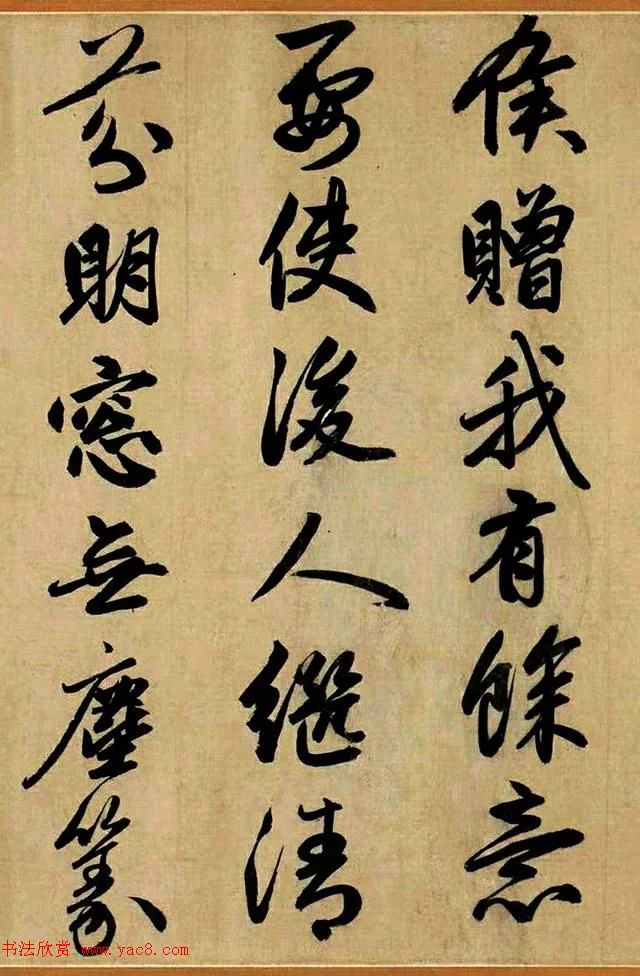 侯贈我有餘意
要使後人繼清
芬明窓無塵篆
书法欣赏 www.yac8.com